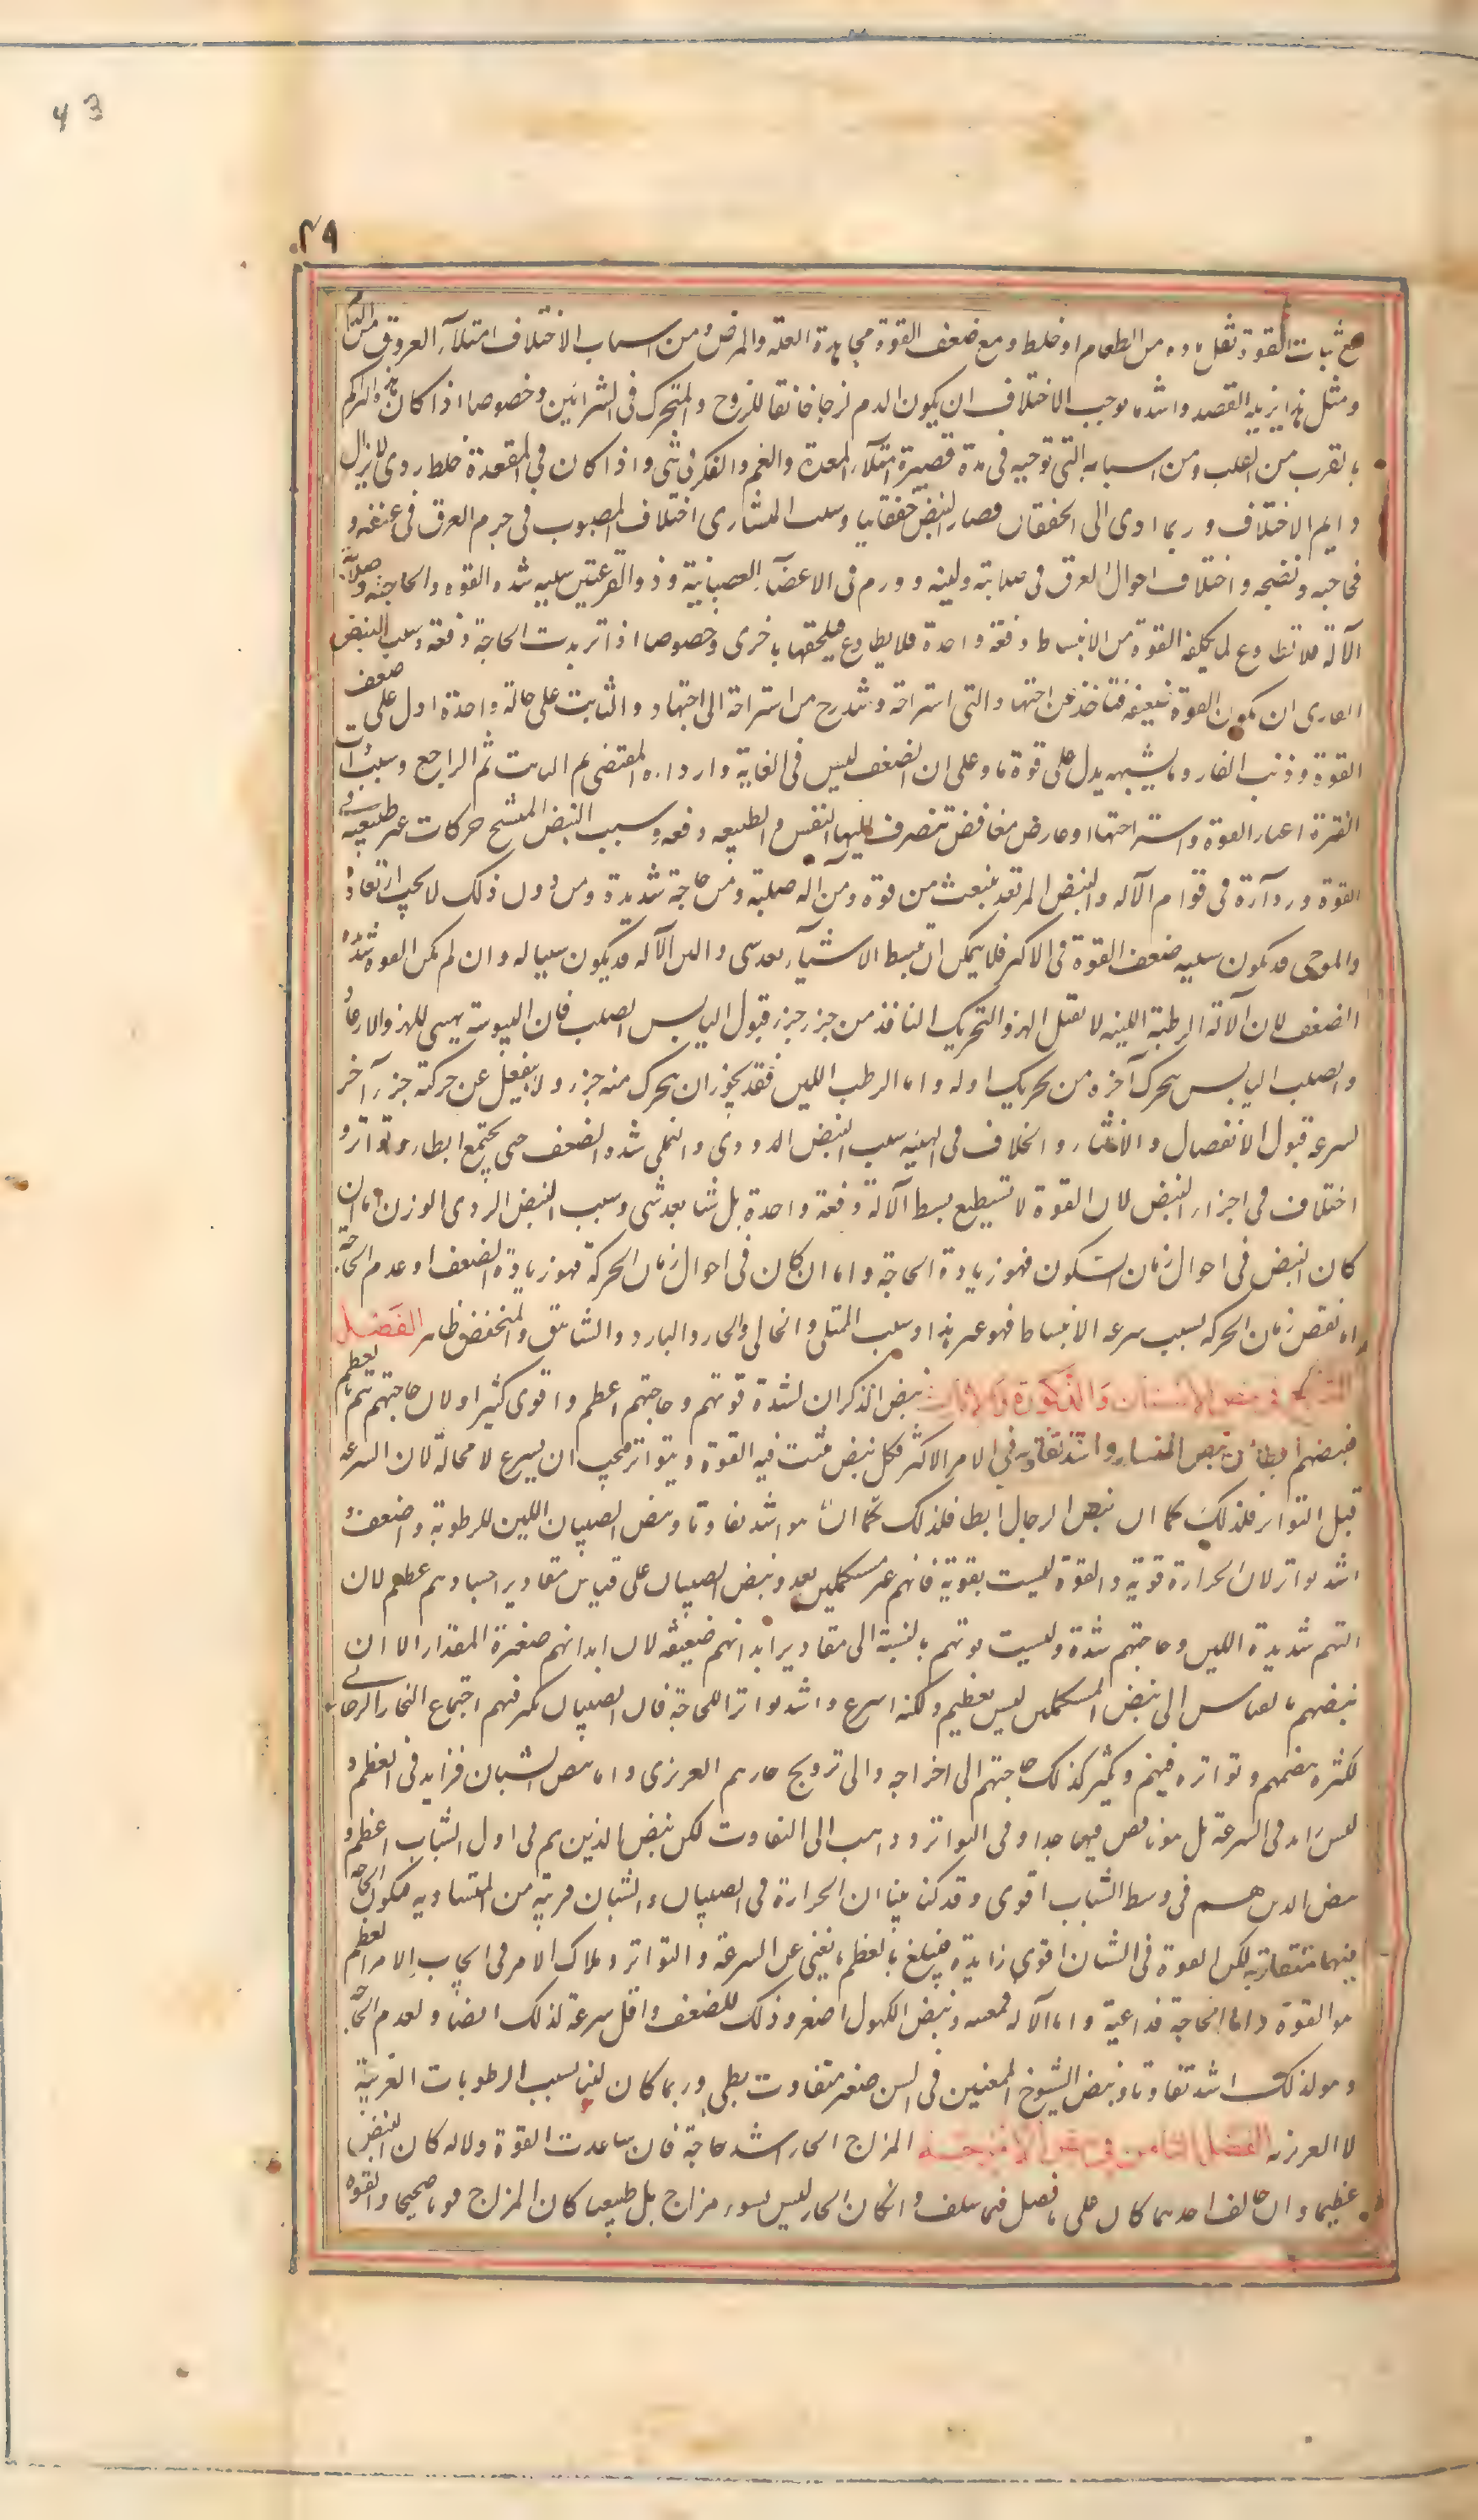 43
٤٩
مع ثبات القوة ثقل مادة من الطعام او خلط ومع ضعف القوة مجاهدة العلة والمرض ومن اسباب الاختلاف امتلاء العروق من الدم
ومثل هذا يزيله الفصد واشد ما يوجب الاختلاف ان يكون الدم لزجا خانقا للروح والمتحرك في الشرائين وخصوصا اذا كان هذا التراكم
بالقرب من القلب ومن اسبابه التي توجبه في مدة قصيرة امتلاء المعدة والغم والفكر في شي واذا كان في المعدة خلط ردى لا يزال
دايم الاختلاف وربما ادى الى الخفقان فصار النبض خفقانيا وسبب المنشارى اختلاف المصبوب في جرم العرق في عفنه و
فجاجته ونضجه واختلاف احوال العرق في صلابته ولينه وورم في الاعضاء العصبانية وذو القرعتين سببه شدة القوه والحاجة وصلابة
الآلة فلا تطاوع لما يكلفه القوة من الانبساط دفعة واحدة فلا يطاوع فيلحقها باخرى وخصوصا اذا تزيدت الحاجة دفعة وسبب النبض
الفارى ان يكون القوة ضعيفه فتاخذ عن اجتهاد الى استراحة وتتدرج من استراحة الى اجتهاد والثابت على حالة واحدة ادل على ضعف
القوة وذنب الفار وما يشبهه يدل على قوة ما وعلى ان الضعف ليس في الغاية واردأه المقتضى ثم الثابت ثم الراجع وسبب ذات
الفترة اعياء القوة واستراحتها او عارض مغافض تتصرف اليها النفس والطبيعه دفعه وسبب النبض المتشنج حركات غير طبيعيه في
القوة ورداءة في قوام الآله والنبض المرتعد ينبعث من قوة ومن آلة صلبة ومن حاجة شديدة ومن دون ذلك لا يجب ارتعاده
والموجى قد يكون سببه ضعف القوة في الاكثر فلا يمكن ان يبسط الا شيأ بعد شى ولين الآلة قد يكون سببا له وان لم يكن القوة شديدة
الضعف لان الآلة الرطبة اللينه لا تقبل الهز والتحريك النافذ من جزء جزء قبول اليابس الصلب فان اليبوسة يهيى للهز والارعاد
والصلب اليابس يتحرك آخره من تحريك اوله واما الرطب اللين فقد يجوز ان يتحرك منه جزء ولا ينفعل عن حركته جزء آخر
لسرعة قبول الانفصال والانثناء والخلاف في الهيئه سبب النبض الدودى والنملى شدة الضعف حتى يجتمع ابطاء وتواتر و
اختلاف في اجزاء النبض لان القوة لا تستطيع بسط الآلة دفعة واحدة بل شيا بعد شى وسبب النبض الردى الوزن اما ان
كان النبض في احوال زمان السكون فهو زيادة الحاجة واما ان كان في احوال زمان الحركة فهو زيادة الضعف او عدم الحاجة
واما نقص زمان الحركه بسبب سرعه الانبساط فهو غير هذا وسبب الممتلى والخالى والحار والبارد والشاهق والمنخفض ظاهر الفصل
السابع في نبض الاسنان والذكورة والاناث نبض الذكران لشدة قوتهم وحاجتهم اعظم واقوى كثيرا ولان حاجتهم تتم بالعظم
فنبضهم ابطأ من نبض النساء واشد تفاوتا في الامر الاكثر فكل نبض يثبت فيه القوة ويتواتر فيجب ان يسرع لا محالة لان السرعه
قبل التواتر فلذلك كما ان نبض الرجال ابطا فلذلك كما ان هو اشد تفاوتا ونبض الصبيان اللين للرطوبة واضعف و
اشد تواتر لان الحرارة قوية والقوة ليست بقوية فانهم غير مستكملين بعد ونبض الصبيان على قياس مقادير اجسادهم عظيم لان
آلتهم شديدة اللين وحاجتهم شدة وليست قوتهم بالنسبة الى مقادير ابدانهم ضعيفه لان ابدانهم صغيرة المقدار الا ان
نبضهم بالقياس الى نبض المستكملين ليس بعظيم ولكنه اسرع واشد تواترا للحاجة فان الصبيان يكثر فيهم اجتماع البخار الدخانى
لكثرة هضمهم وتواتره فيهم ويكثر لذلك حاجتهم الى اخراجه والى ترويح حارهم الغريزى واما نبض الشبان فزايد في العظم و
ليس زايد في السرعة بل هو ناقص فيها جدا وفي التواتر وذاهب الى التفاوت لكن نبض الذين هم في اول الشباب اعظم و
نبض الذين هم في وسط الشباب اقوى وقد كنا بينا ان الحرارة في الصبيان والشبان قريبه من المتساويه فيكون الحاجة
فيهما متقاربة لكن القوة في الشبان اقوى زايدة فيبلغ بالعظم ما يغنى عن السرعة والتواتر وملاك الامر في ايجاب الامر العظم
هو القوة واما الحاجة فداعية واما الآلة فمعينه ونبض الكهول اصغر وذلك للضعف واقل سرعة لذلك ايضا ولعدم الحاجة
وهو لذلك اشد تفاوتا ونبض الشيوخ الممعنين في السن صغير متفاوت بطى وربما كان لينا بسبب الرطوبات الغريبة
لا الغريزيه الفصل الثامن في نبض الامزجة المزاج الحار اشد حاجة فان ساعدت القوة والاله كان النبض
عظيما وان خالف احدهما كان على ما فصل فيما سلف وان كان الحار ليس سوء مزاج بل طبيعيا كان المزاج قويا صحيحا والقوه